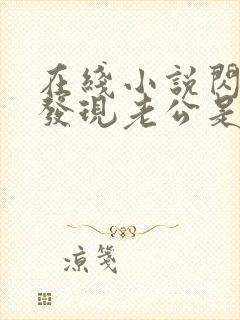 在綫小説閃
發現老公是
凉箋